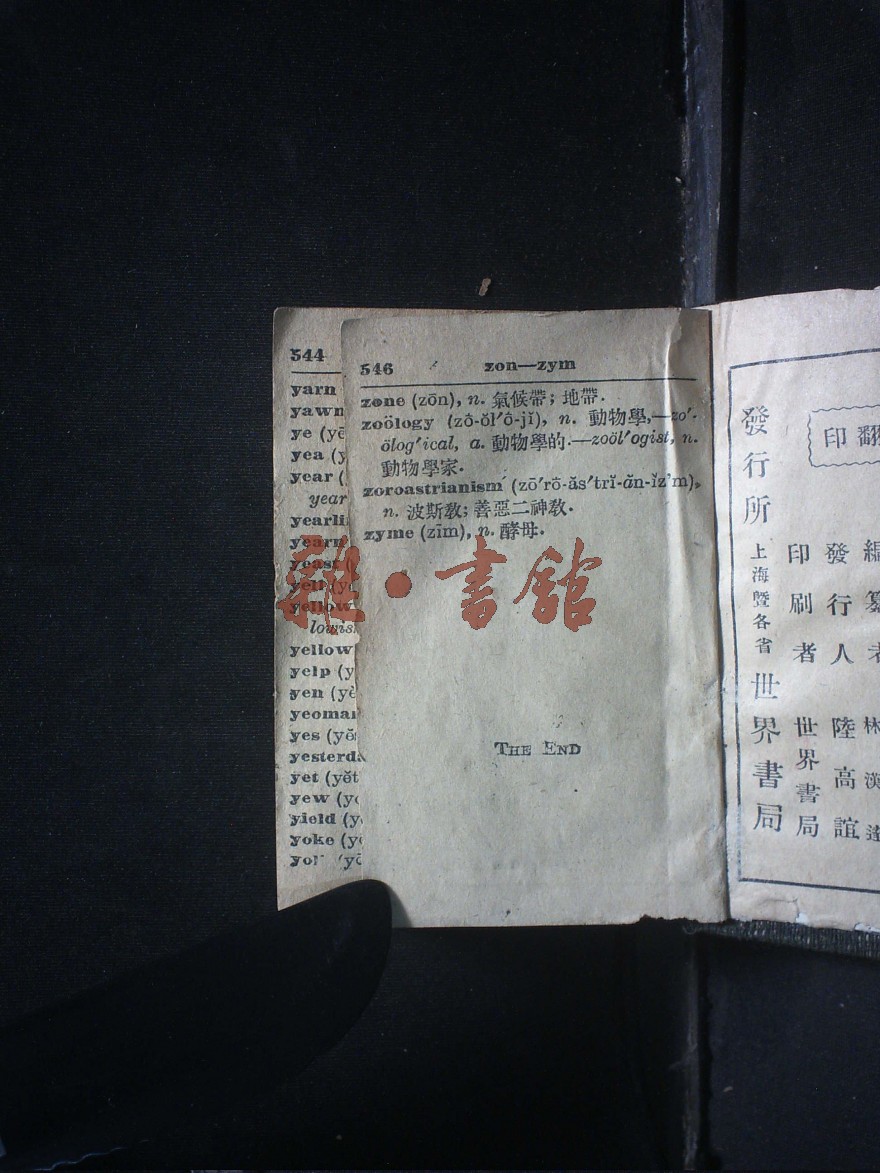 544
yarn
yawn
ye
yea
year (
year
yearli
yearn
yeast
yell (y
yellow
lowns
yellow
yelp (y
yen (yĕ
yeoman
yes (yĕs
yesterda
yet (yĕt
yew (y
yield (y
yoke (y
546 zon—zym
zone (zōn), n. 氣候帶；地帶.
zoölogy (zô-ŏl′ô-jĭ), n. 動物學,—zo′-
ölog′ical, a. 動物學的.—zoöl′ogist, n.
動物學家.
zoroastrianism (zō′rō-ăs′trĭ-ăn-ĭz'm),
n. 波斯教；善惡二神教.
zyme (zīm), n. 酵母.
THE END
雜·書館
翻印
編纂者 林漢達
發行人 陸高誼
印刷者 世界書局
發行所 上海暨各省 世界書局